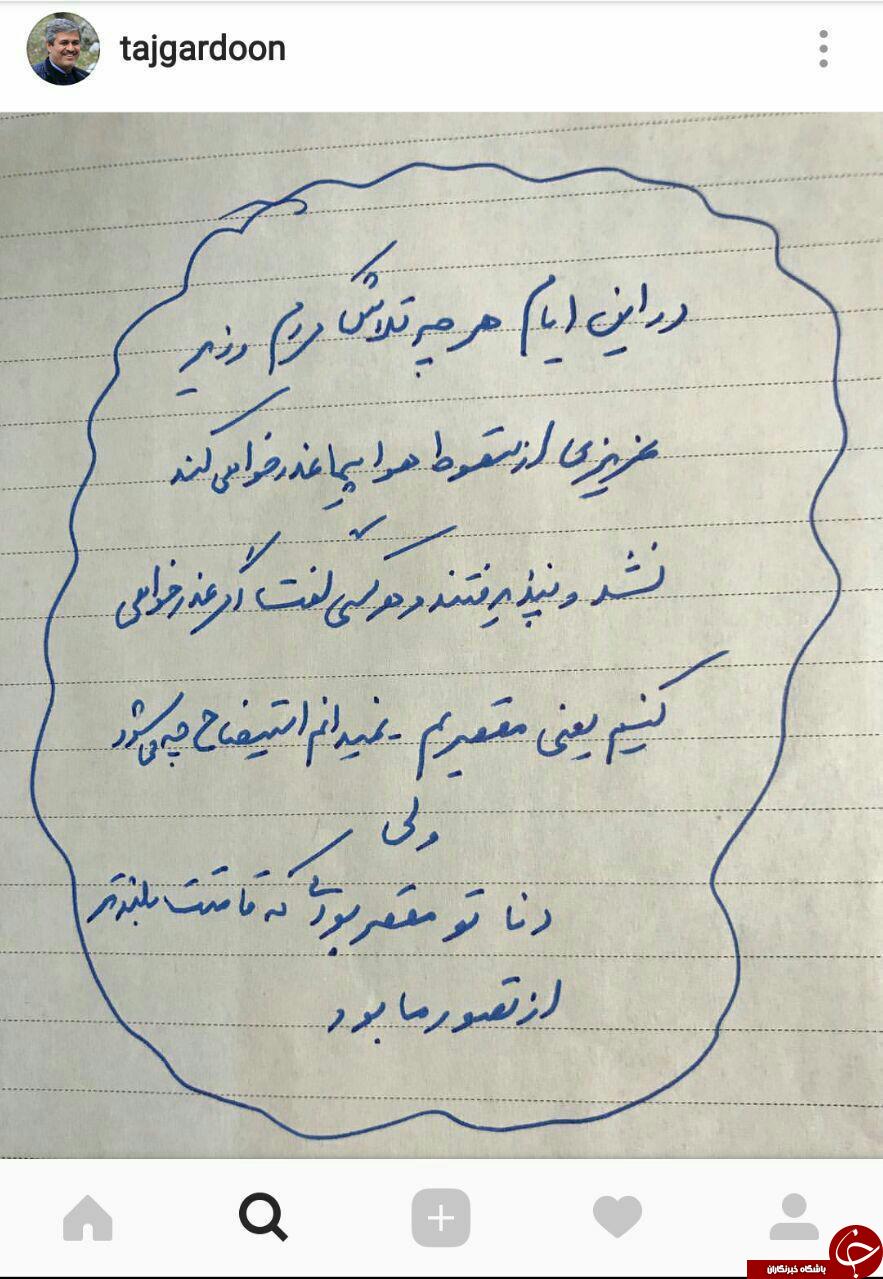 tajgardoon
در این ایام هر چه تلاش کردم وزیر
عزیزی از سقوط هواپیما عذرخواهی کند
نشد و نپذیرفتند و هر کسی گفت اگر عذرخواهی
کنیم یعنی مقصریم - نمیدانم استیضاح چه می شود
ولی
دنا تو مقصر بودی که قامتت بلندتر
از تصور ما بود
باشگاه خبرنگاران